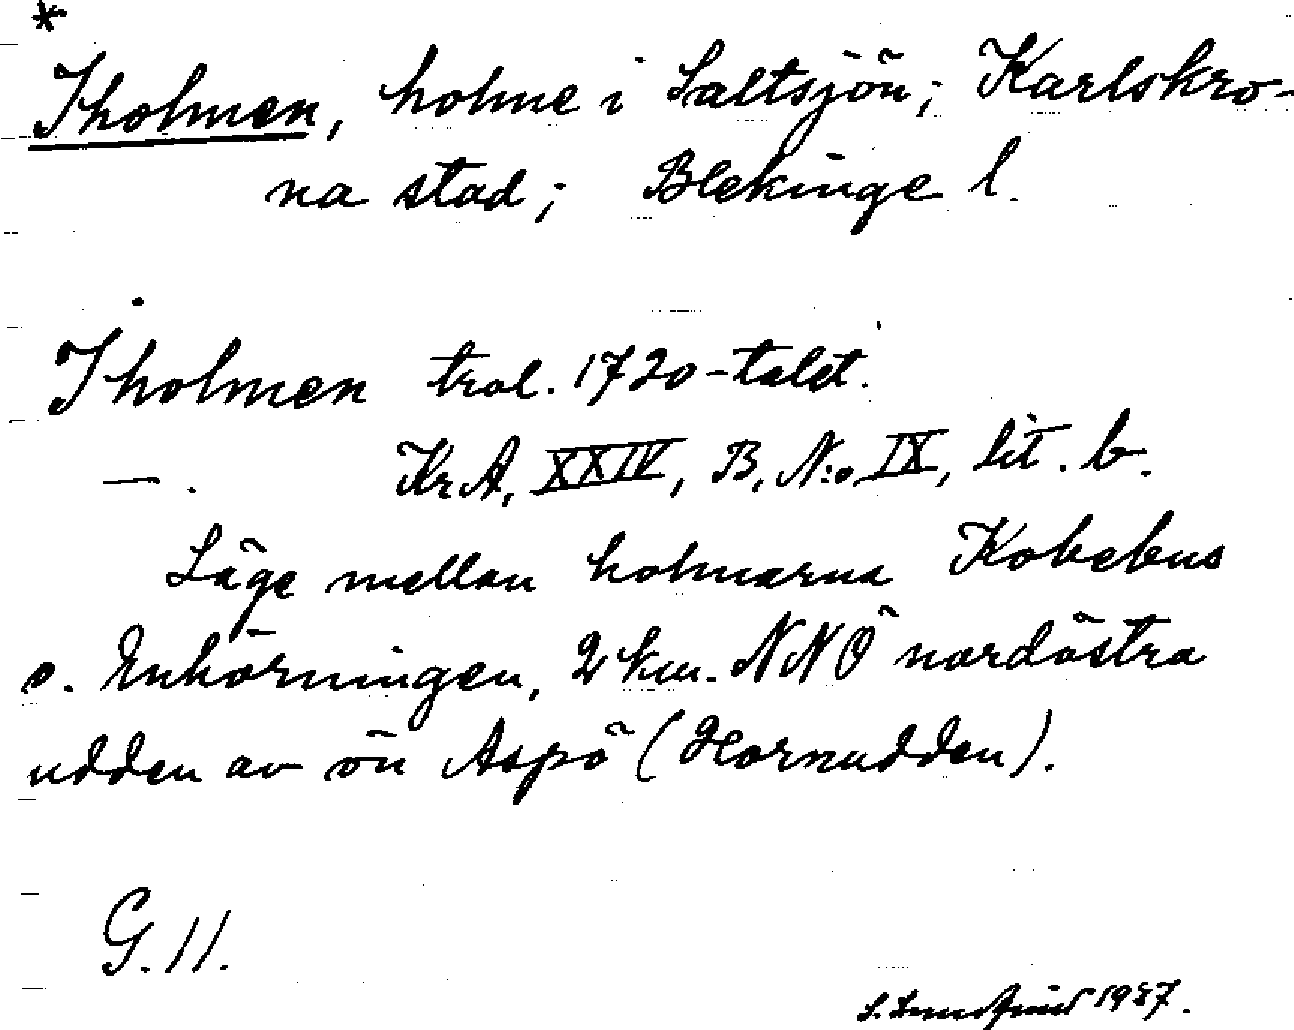 *
Iholmen, holme i Saltsjön; Karlskro-
na stad; Blekinge l.
Iholmen trol. 1720-talet.
—. KrA, XXIV, B, N:o IX, lit. b.
Läge mellan holmarna Kobebus
o. Enhörningen, 2 km. NNÖ nordöstra
udden av ön Aspö (Hornudden).
G. 11.